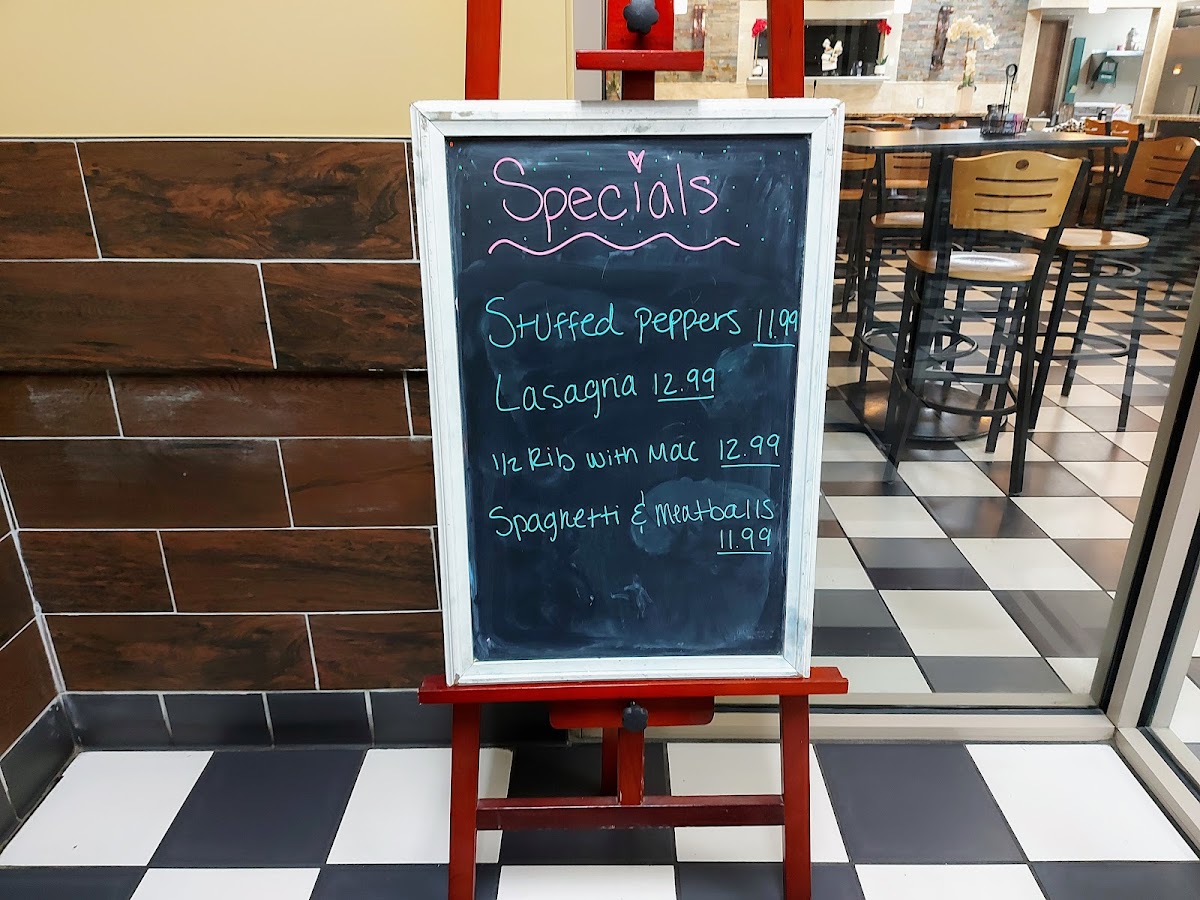 Specials
Stuffed peppers 11.99
Lasagna 12.99
1/2 Rib with Mac 12.99
Spaghetti & Meatballs
11.99